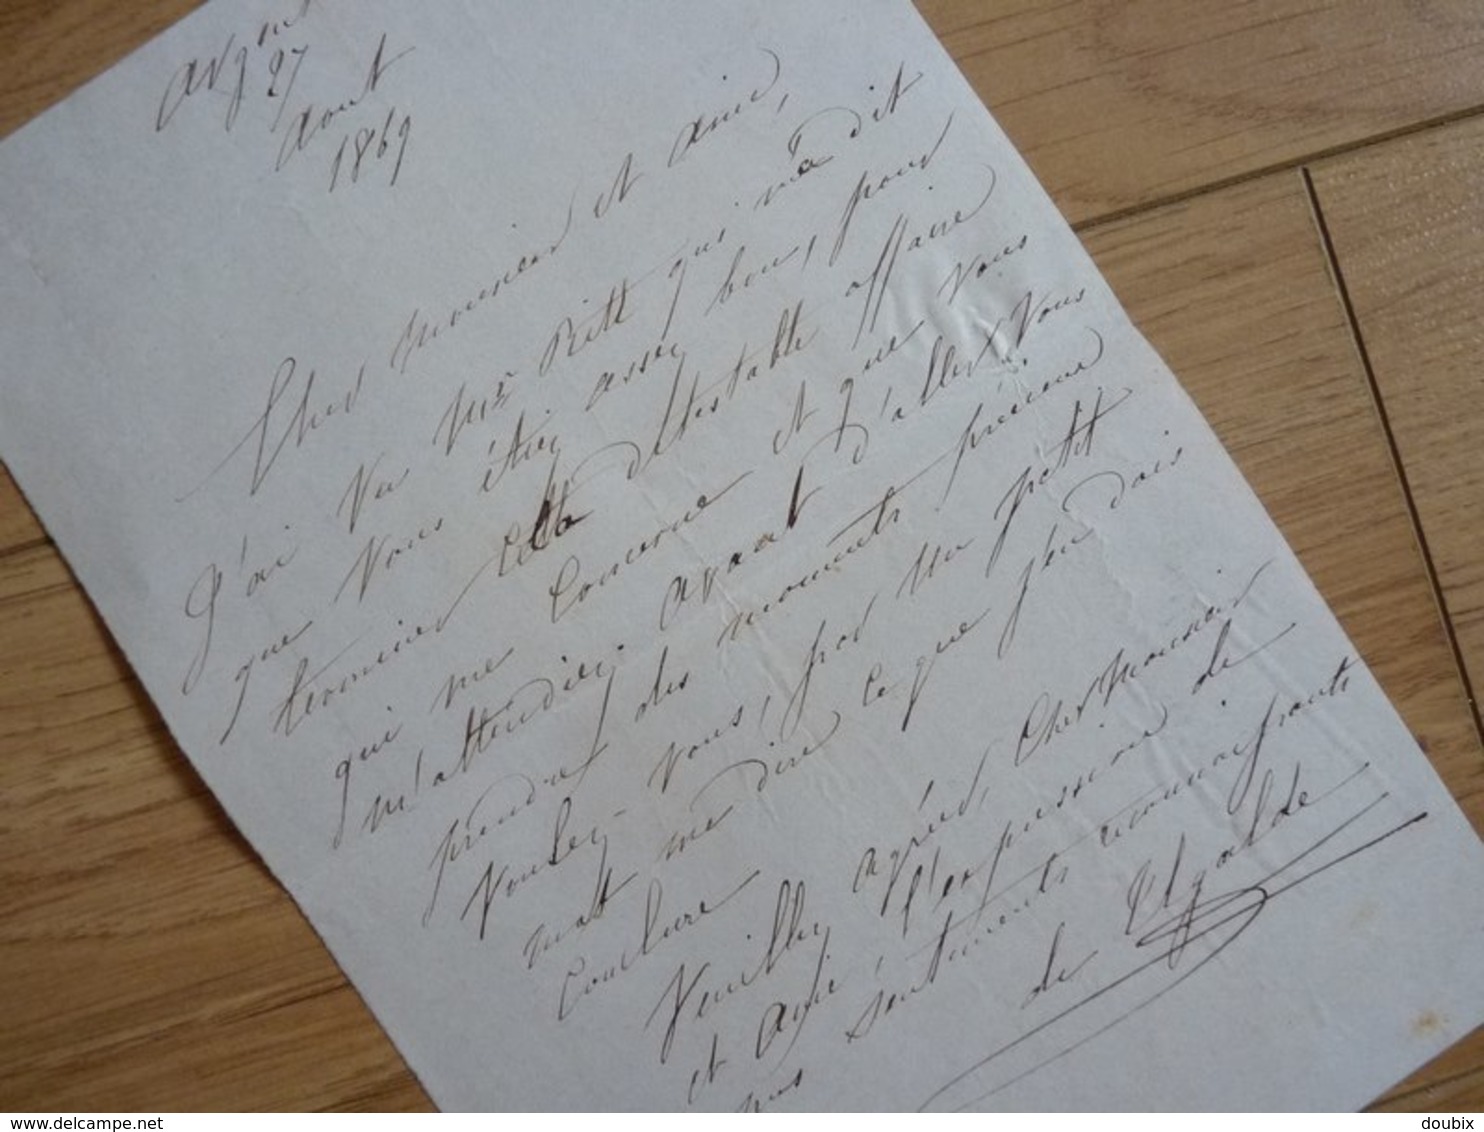 27
Aout
1869
Cher Monsieur et ami,
J'ai Vu Mr Ritt qui m'a dit
que Vous étiez assez bon, pour
terminer cette détestable affaire
qui me Concerne et que Vous
m'attendiez avant d'aller Vous
prendre des moments
Voulez-Vous, par un petit
mot me dire ce que je dois
Conclure
Veuillez agréer, Cher Monsieur
et Ami, l'expression de
mes sentiments reconnaissants
de Ugalde
www.delcampe.net
doubix